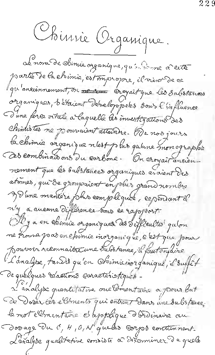 229
Chimie Organique.
Le nom de chimie organique, qu' a cette
partie de la chimie, est impropre, il vient de ce
qu'anciennement, on croyait que les substances
organiques, s'étaient développées sous l'influence
d'une force vitale à laquelle les investigations des
chimistes ne pouvaient atteindre. De nos jours
la chimie organique n'est plus qu'une monographie
des combinaisons du carbone. On croyait ancien-
nement que les substances organiques étaient des
atomes, qui se groupaient en plus grand nombre
d'une manière plus compliquée, cependant il
n'y a aucune différence sous ce rapport.
Il y a en chimie organique des difficultés qu'on
ne trouve pas en chimie inorganique, c'est que pour
pouvoir reconnaitre une substance, il faut en faire
l'analyse, tandis qu'en chimie inorganique, il suffit
de quelques réactions caractéristiques.
L'analyse quantitative élémentaire a pour but
de doser les éléments qui entrent dans une substance,
le mot élémentaire s'applique d'ordinaire au
dosage du C, H, O, N quels corps contiennent.
L'analyse qualitative consiste à déterminer de quels